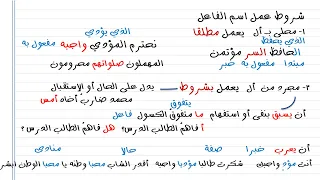 شروط عمل اسم الفاعل
١- محلى بـ أل يعمل مطلقا
الذي يحفظ الذي يؤدي
الحافظ السر مؤتمن نحترم المؤدي واجبه مفعول به
مبتدا مفعول به خبر المهملون صلواتهم محرومون
٢- مجرد من أل يعمل بشروط يدل على الحال أو الإستقبال
محمد ضارب أخاه أمس
يتفوق
أن يسبق بنفي أو استفهام ما متفوق الكسول فاعل
أ فاهم الطالب الدرس؟ هل فاهم الطالب الدرس؟
أن يعرب خبرا صفة حالا منادى
أنت مؤد واجبك شكرت طالبا مؤديا واجبه أقدر الشاب محبا وطنه يا محبا الوطن ابشر